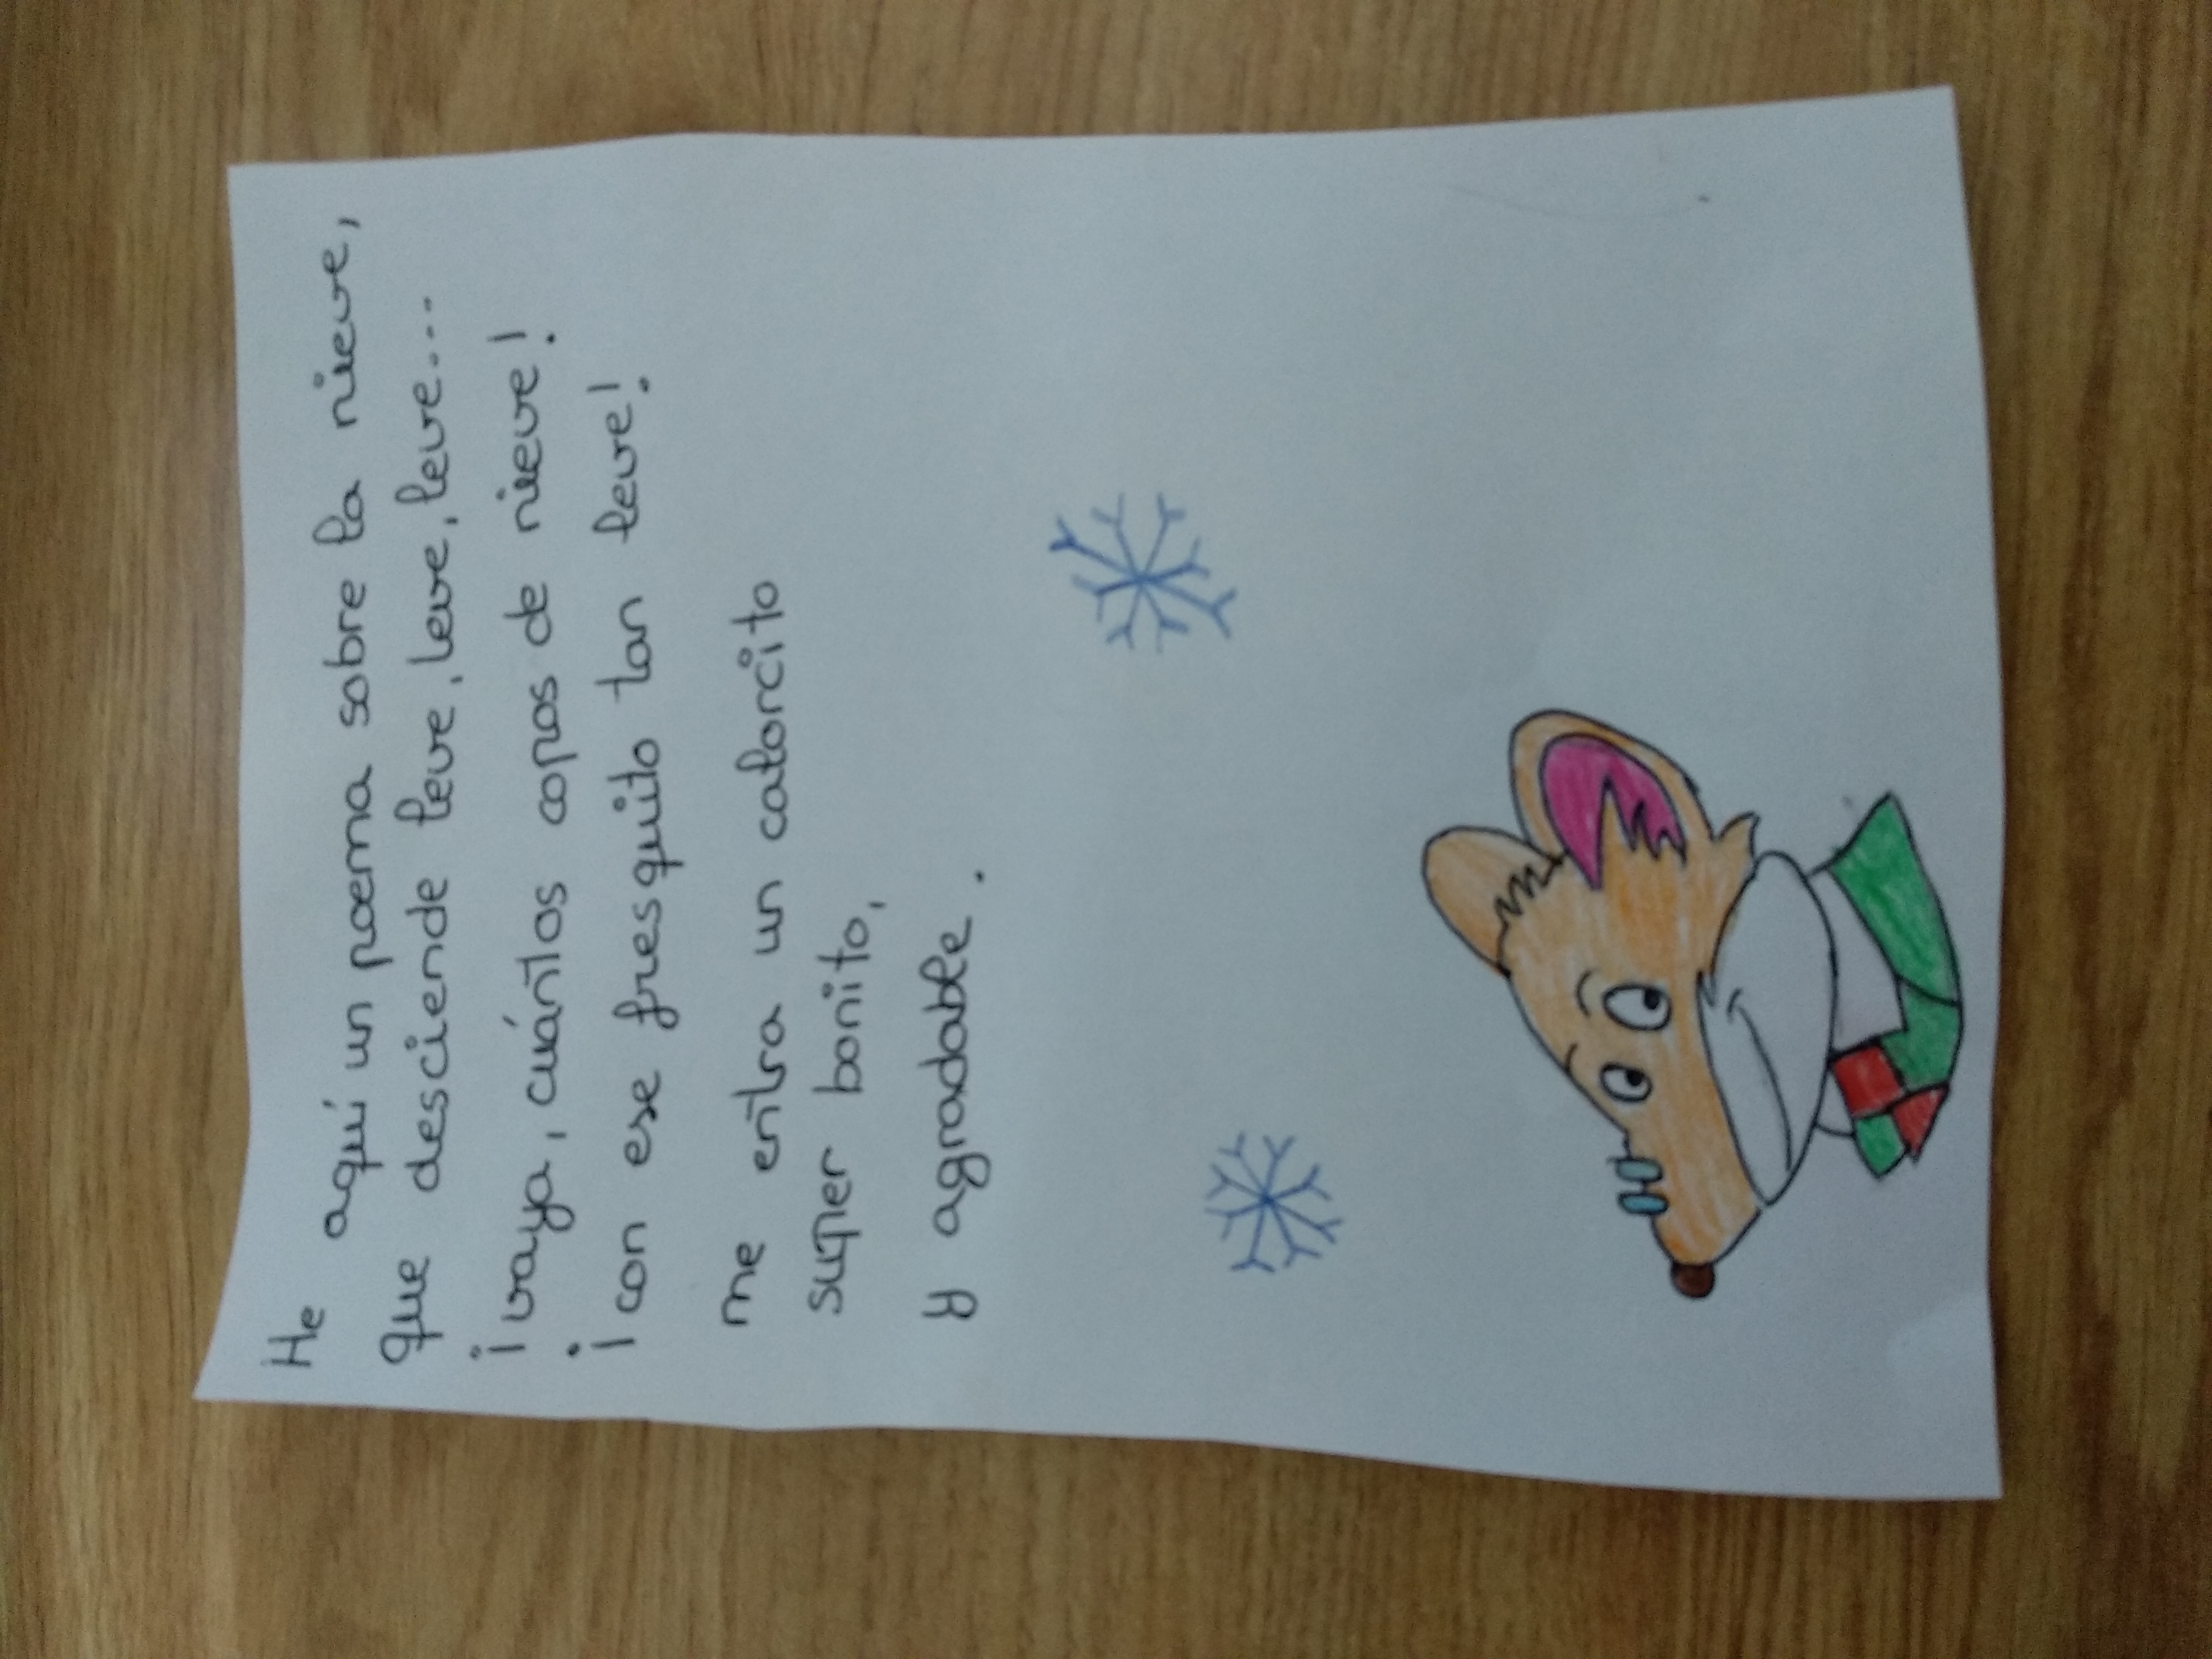 He aquí un poema sobre la nieve,
que desciende leve, leve, leve...
¡vaya, cuántos copos de nieve!
¡con ese fresquito tan leve!
me entra un calorcito
super bonito,
y agradable.